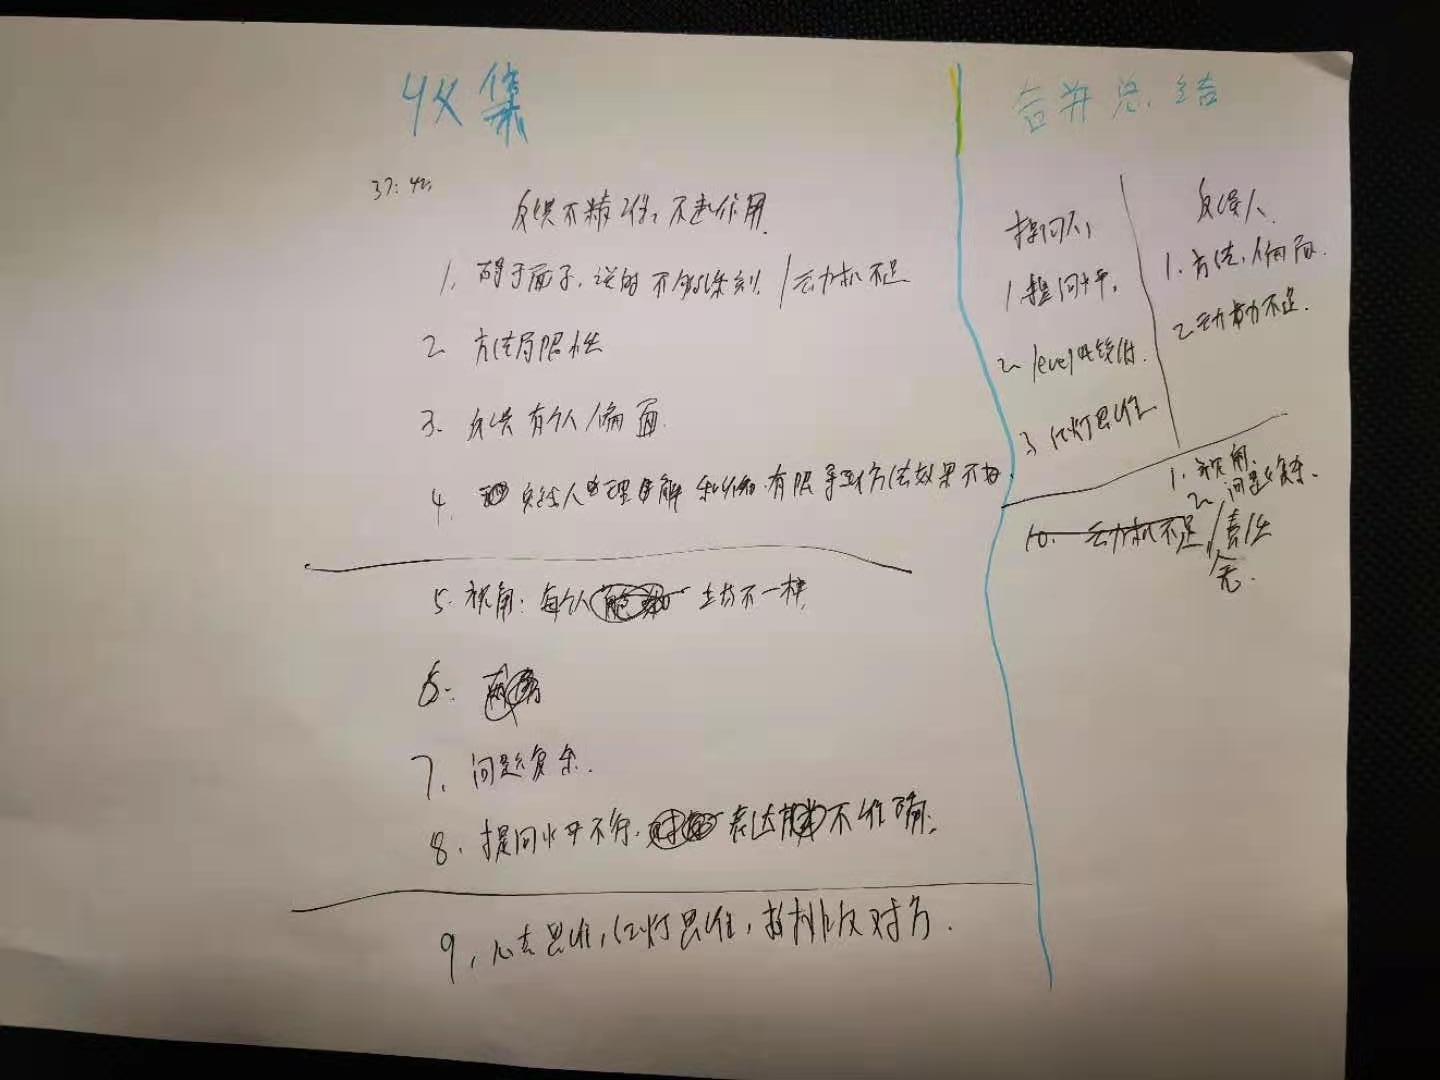 收集
37:42
反馈不精准,不起作用.
1. 碍于面子,说的不够深刻. /动力不足
2. 方法局限性
3. 反馈有个人偏面.
4. 人理解 有限 方法效果不好.
5. 视角: 每个人 立场不一样.
6.
7. 问题复杂.
8. 提问水平不行. 表达 不准确.
9. 思维, 红灯思维, 排反对方.
合并总结
提问人
1 提问水平.
2 level比较低.
3 红灯思维.
反馈人.
1. 方法,偏面.
2 动力不足.
1. 视角.
2. 问题复杂.
10. 动力不足/责任